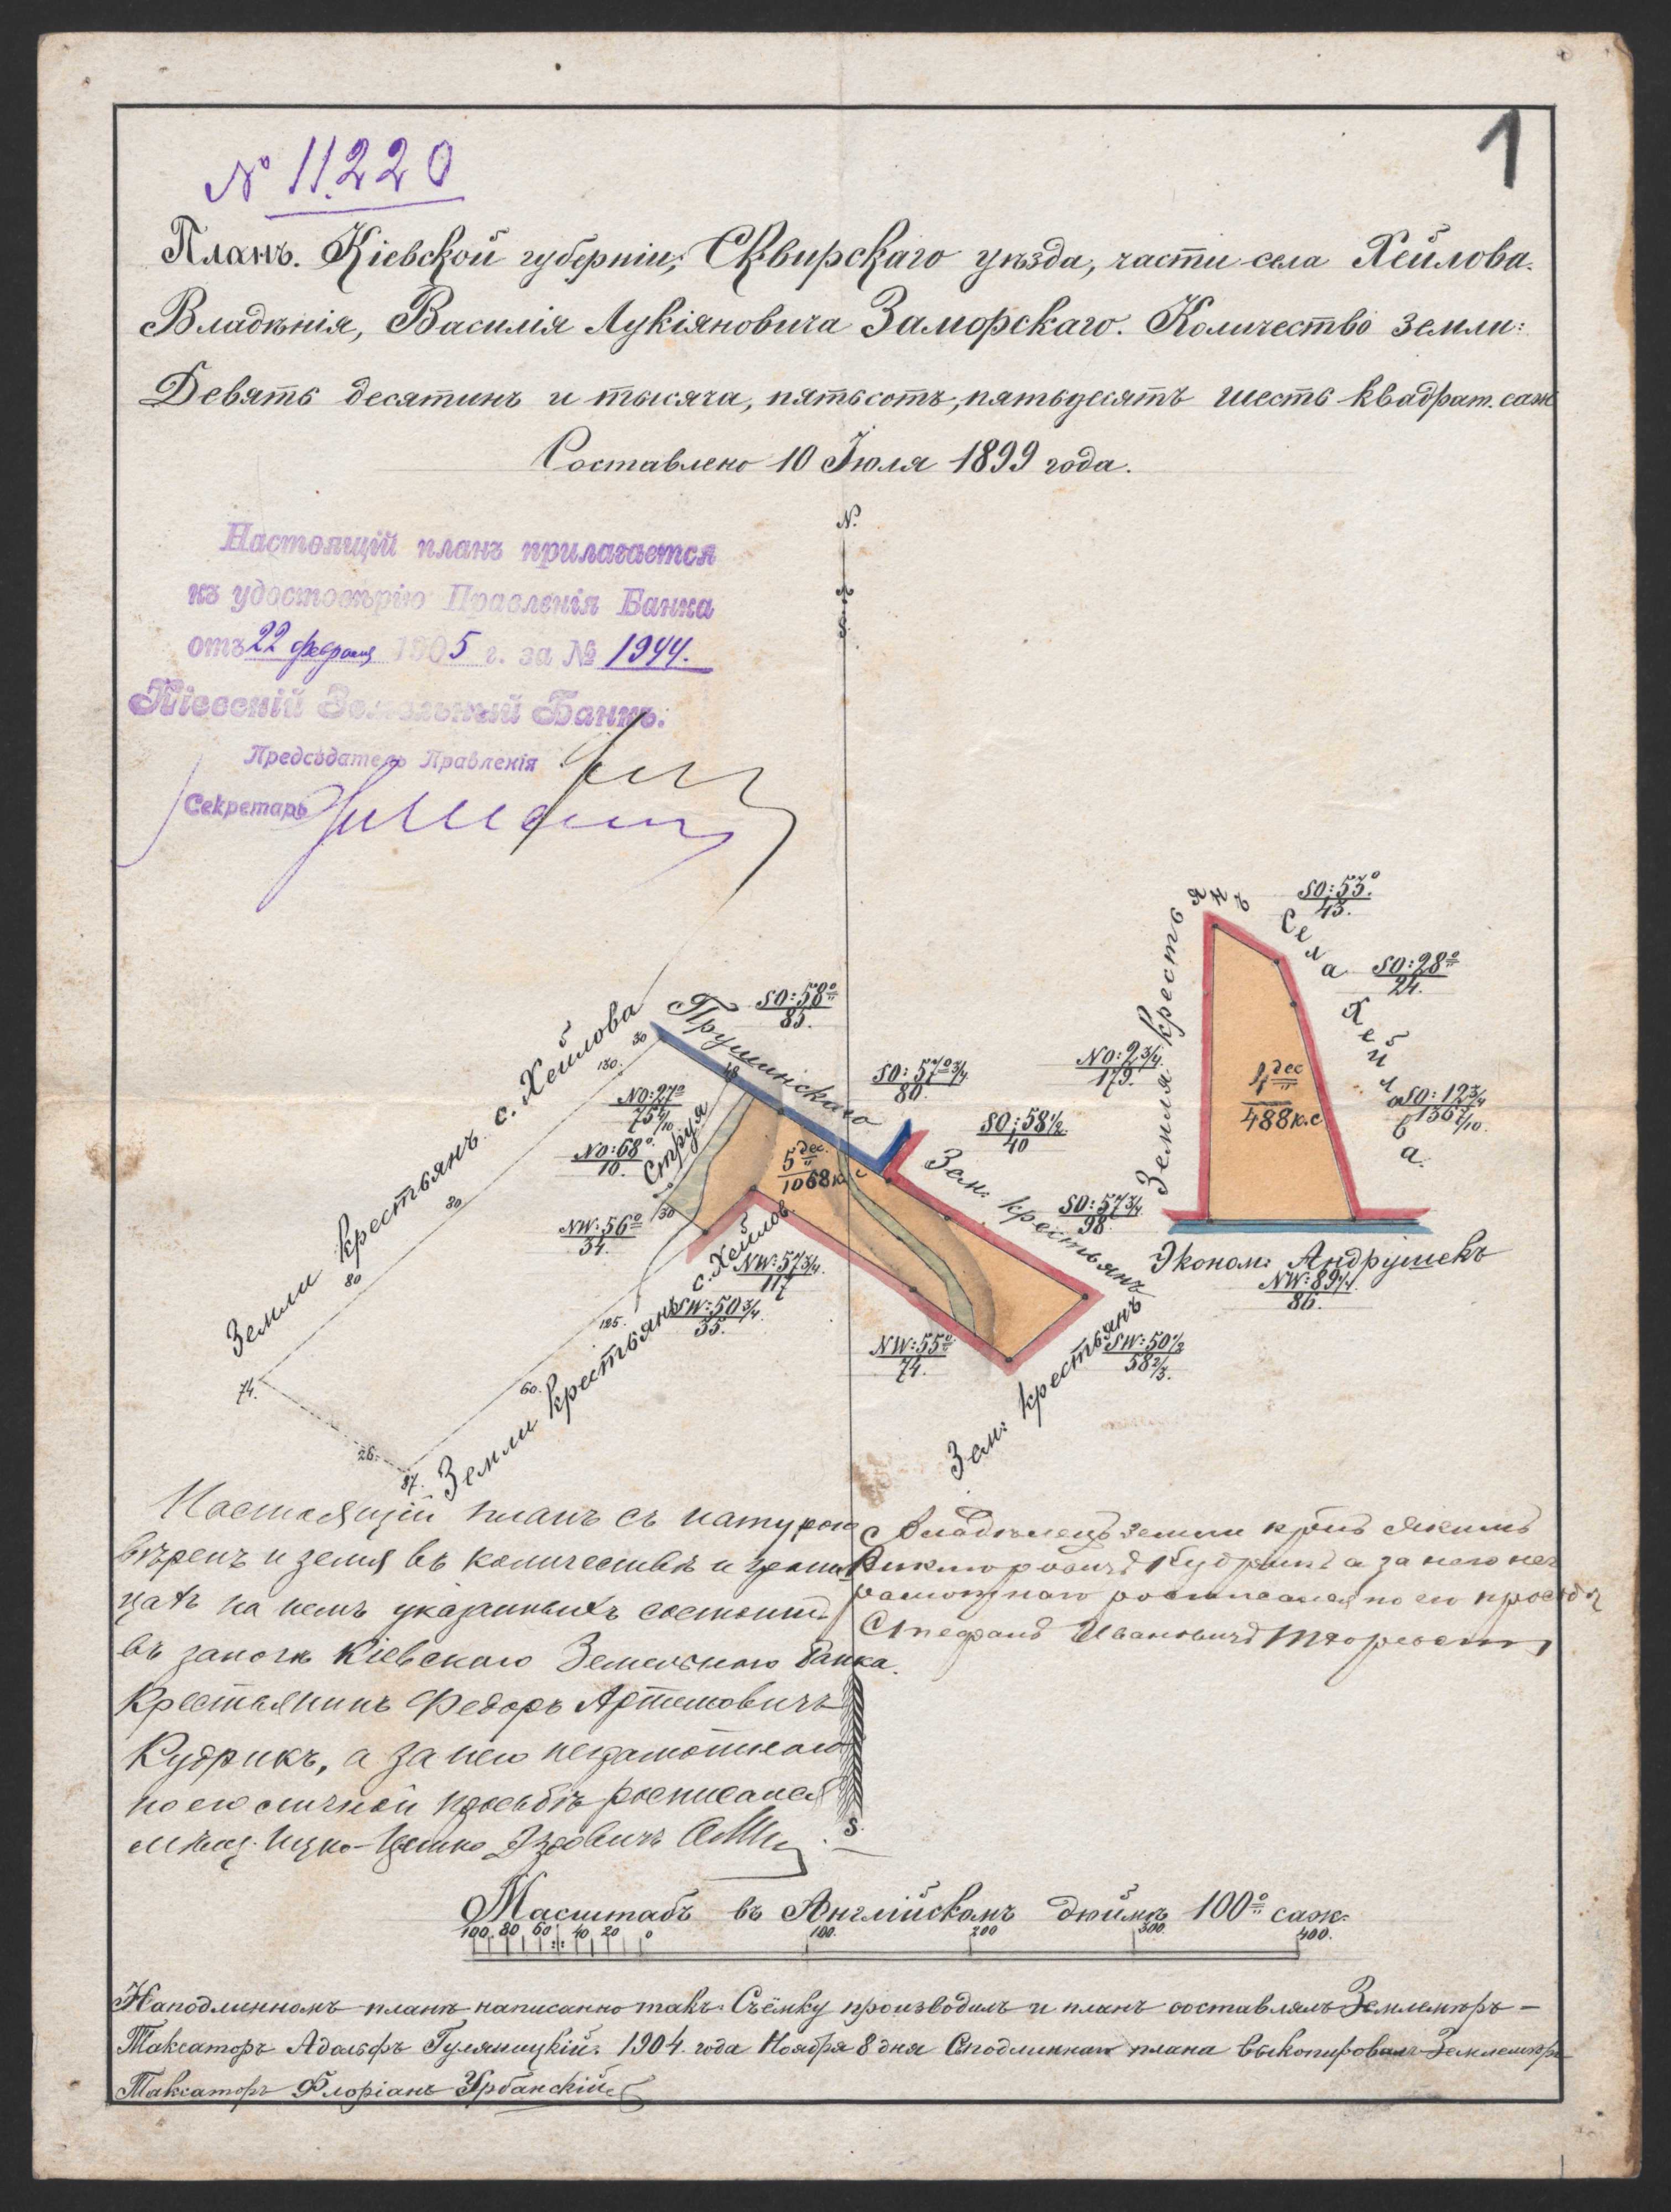 № 11220
1
Планъ. Кіевской губерніи, Сквирскаго уѣзда, части села Хейлова.
Владѣнія, Василія Лукіяновича Заморскаго. Количество земли:
Девять десятинъ и тысяча, пятьсотъ, пятьдесятъ шесть квадрат. саж
Составлено 10 Іюля 1899 года.
Настоящій планъ прилагается
къ удостовѣрію Правленія Банка
отъ 22 февраля 1905 г. за № 1944.
Кіевскій Земельный Банкъ.
Предсѣдатель Правленія
Секретарь
N.
S.
Земля крестьянъ села Хейлова.
SO: 53°
43.
SO: 28°
24.
SO: 12 3/4
136 7/10.
NO: 2 3/4
179.
1 дес
488 к.с
Эконом: Андрушекъ
NW: 89 1/4
86.
Земли крестьянъ с. Хейлова
Прушинскаго
SO: 58°
85.
SO: 57° 3/4
80.
SO: 58 1/2
40
SO: 57 3/4
98
Зем: крестьянъ
NO: 27°
75 4/10
NO: 68°
10.
Струя
NW: 56°
34.
5 дес.
1068 к. с
NW: 57 3/4
117
SW: 50 3/4
35.
NW: 55°
74.
SW: 50 1/2
58 2/3.
Зем: крестьянъ
Земли крестьянъ с. Хейлов.
30
130.
80
80
74.
26.
87.
60.
125.
30
48
Настоящій планъ съ натурою
вѣренъ и земля въ количествѣ и грани
цахъ на немъ указанныхъ состоитъ
въ залогѣ Кіевскаго Земельнаго Банка.
Крестьянинъ Федоръ Артемовичъ
Кудрикъ, а за него неграмотнаго
по его личной просьбѣ росписался
Владѣлецъ земли Якимъ
Викторовичъ Кудрикъ а за него нег
рамотнаго росписался по его просьбѣ
Стефанъ Ивановичъ
S.
Масштабъ въ Англійскомъ дюймѣ 100° саж.
100. 80 60 40 20 0 100. 200 300. 400.
Наподлинномъ планѣ написанно такъ: Съёмку производилъ и планъ составлялъ Землемѣръ –
Таксаторъ Адольфъ Гуляницкій. 1904 года Ноября 8 дня Сподлиннаго плана выкопировалъ Землемѣръ
Таксаторъ Флоріанъ Урбанскій